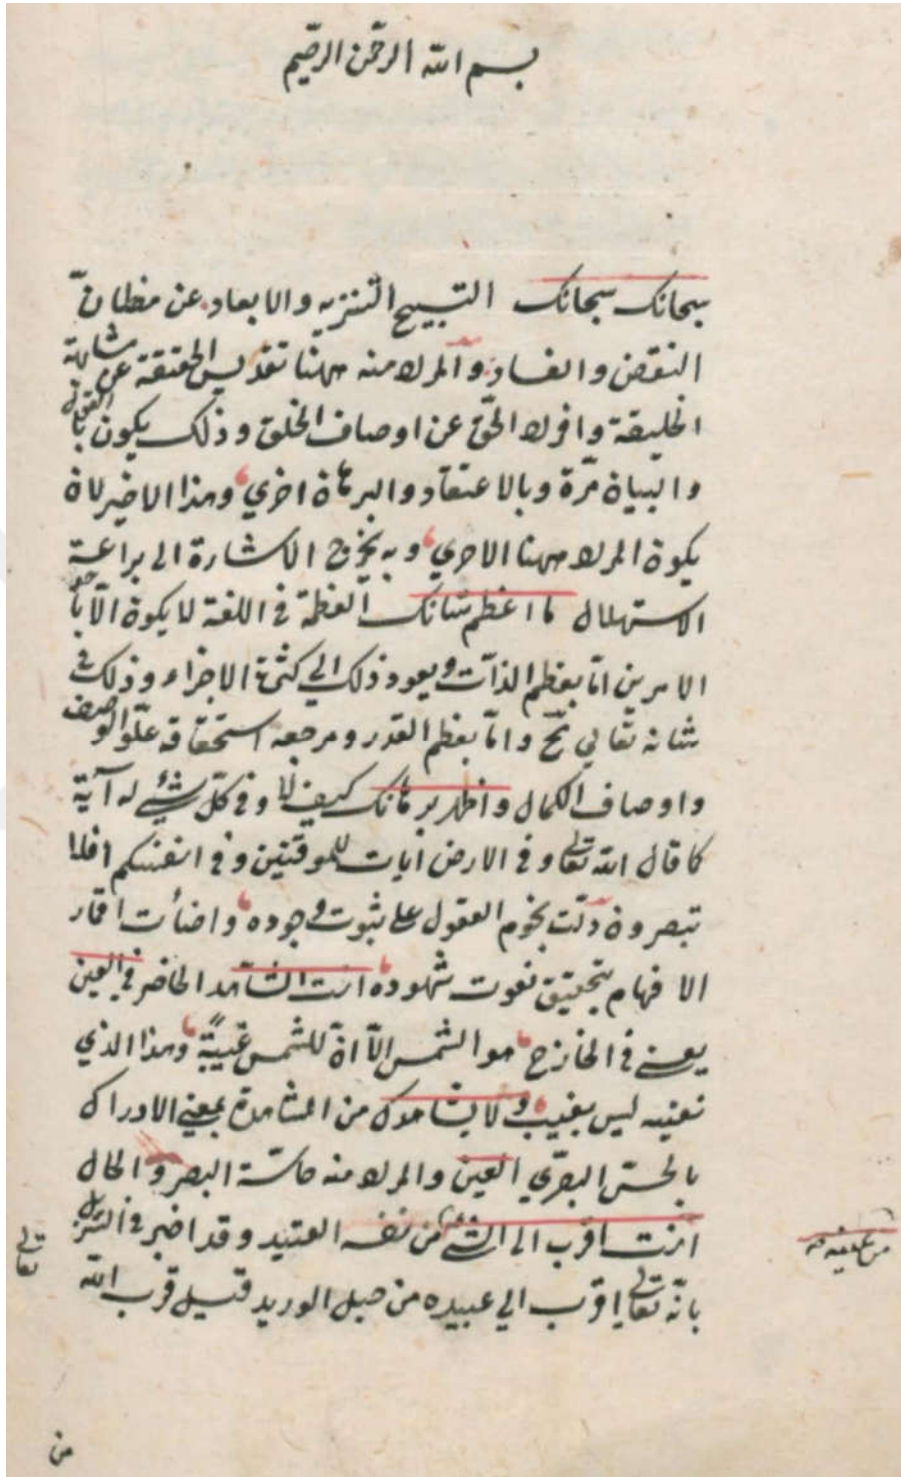 بسم الله الرحمن الرحيم
سبحانك سبحانك التسبيح التنزيه والابعاد عن مظان
النقص والفساد والمراد منه ههنا تقديس الحقيقة عن مشابهة
الخليقة وافراد الحق عن اوصاف الخلق وذلك يكون بالقول
والبيان مرة وبالاعتقاد والبرهان اخرى وهذا الاخير لان
يكون المراد ههنا الاحرى وبه يخرج الاشارة الى براعة
الاستهلال ما اعظم شانك العظمة في اللغة لا يكون الا باحد
الامرين اما بعظم الذات ويعود ذلك الى كثرة الاجزاء وذلك في
شانه تعالى مح واما بعظم القدر ومرجعه استحقاقه علو الوصف
واوصاف الكمال واظهر برهانك كيف لا وفي كل شئ له آية
كما قال الله تعالى وفي الارض ايات للموقنين وفي انفسكم افلا
تبصرون دلت نجوم العقول على ثبوت وجوده واضأت اقمار
الافهام بتحقيق نعوت شهوده انت الشاهد الحاضر في العين
يعني في الخارج هو الشمس الا ان للشمس غيبة وهذا الذي
نعنيه ليس بغيب ولا يشاهدك من المشاهدة بمعنى الادراك
بالحس البصري العين والمراد منه حاسة البصر والحال
انت اقرب الى الشئ من نفسه العتيد وقد اخبر في التنزيل
بانه تعالى اقرب الى عبيده من حبل الوريد قيل قرب الله
تعالى
من